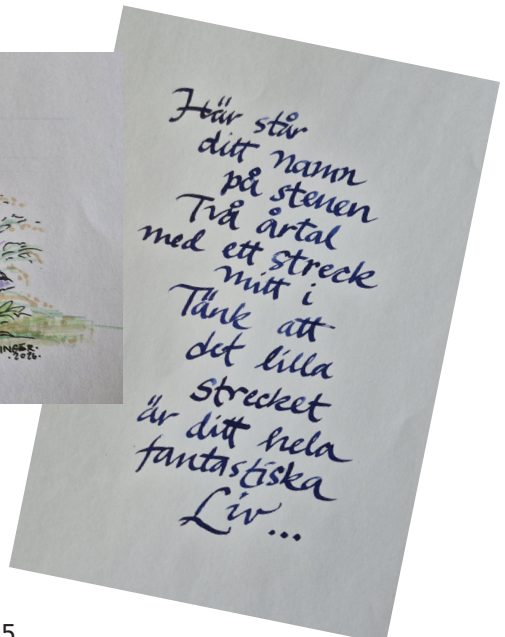 Här står
ditt namn
på stenen
Två årtal
med ett streck
mitt i
Tänk att
det lilla
strecket
är ditt hela
fantastiska
Liv...
INGER.
. 2026.
5